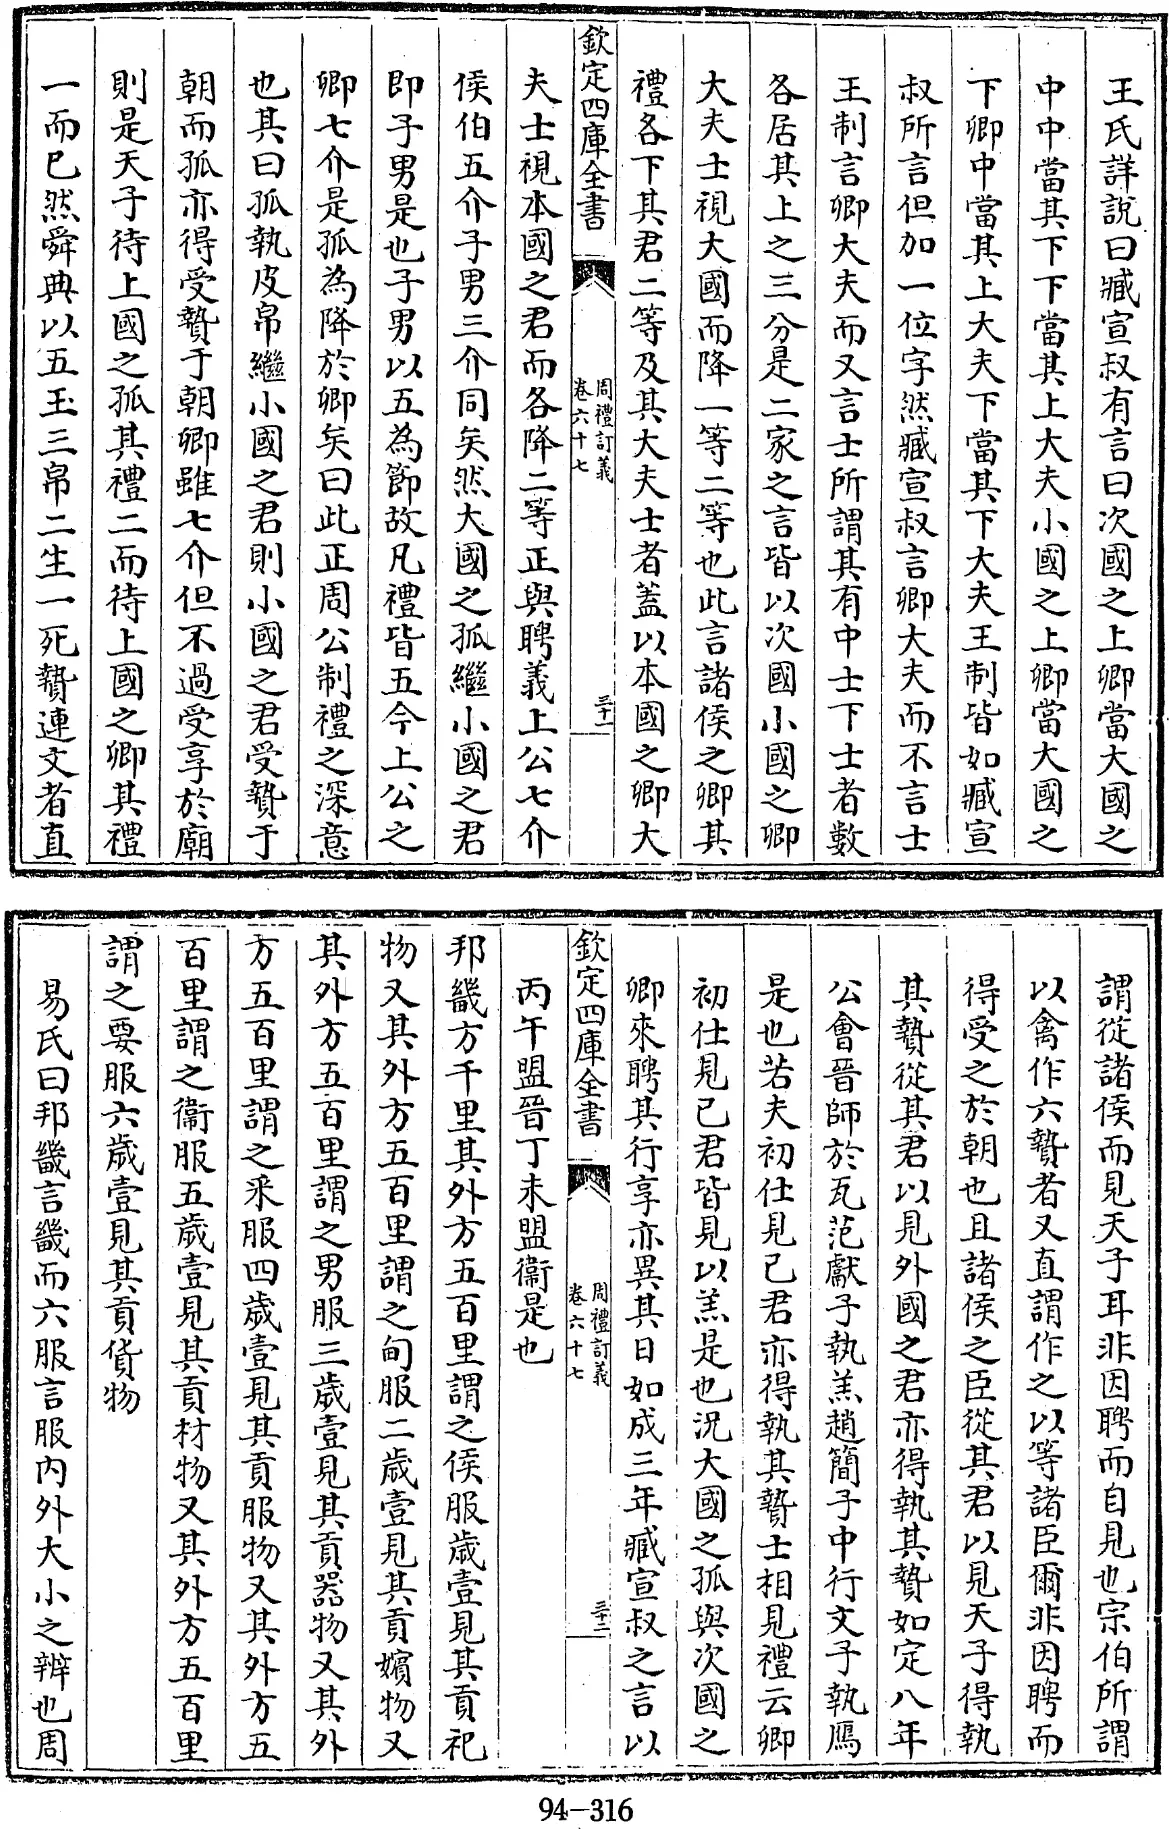 王氏詳說曰臧宣叔有言曰次國之上卿當大國之
中中當其下下當其上大夫小國之上卿當大國之
下卿中當其上大夫下當其下大夫王制皆如臧宣
叔所言但加一位字然臧宣叔言卿大夫而不言士
王制言卿大夫而又言士所謂其有中士下士者數
各居其上之三分是二家之言皆以次國小國之卿
大夫士視大國而降一等二等也此言諸侯之卿其
禮各下其君二等及其大夫士者蓋以本國之卿大
欽定四庫全書
周禮訂義
卷六十七
三十一
夫士視本國之君而各降二等正與聘義上公七介
侯伯五介子男三介同矣然大國之孤繼小國之君
即子男是也子男以五為節故凡禮皆五今上公之
卿七介是孤為降於卿矣曰此正周公制禮之深意
也其曰孤執皮帛繼小國之君則小國之君受贄于
朝而孤亦得受贄于朝卿雖七介但不過受享於廟
則是天子待上國之孤其禮二而待上國之卿其禮
一而已然舜典以五玉三帛二生一死贄連文者直
謂從諸侯而見天子耳非因聘而自見也宗伯所謂
以禽作六贄者又直謂作之以等諸臣爾非因聘而
得受之於朝也且諸侯之臣從其君以見天子得執
其贄從其君以見外國之君亦得執其贄如定八年
公會晉師於瓦范獻子執羔趙簡子中行文子執鴈
是也若夫初仕見己君亦得執其贄士相見禮云卿
初仕見己君皆見以羔是也況大國之孤與次國之
卿來聘其行享亦異其日如成三年臧宣叔之言以
欽定四庫全書
周禮訂義
卷六十七
三十二
丙午盟晉丁未盟衞是也
邦畿方千里其外方五百里謂之侯服歲壹見其貢祀
物又其外方五百里謂之甸服二歲壹見其貢嬪物又
其外方五百里謂之男服三歲壹見其貢器物又其外
方五百里謂之采服四歲壹見其貢服物又其外方五
百里謂之衞服五歲壹見其貢材物又其外方五百里
謂之要服六歲壹見其貢貨物
易氏曰邦畿言畿而六服言服內外大小之辨也周
94-316